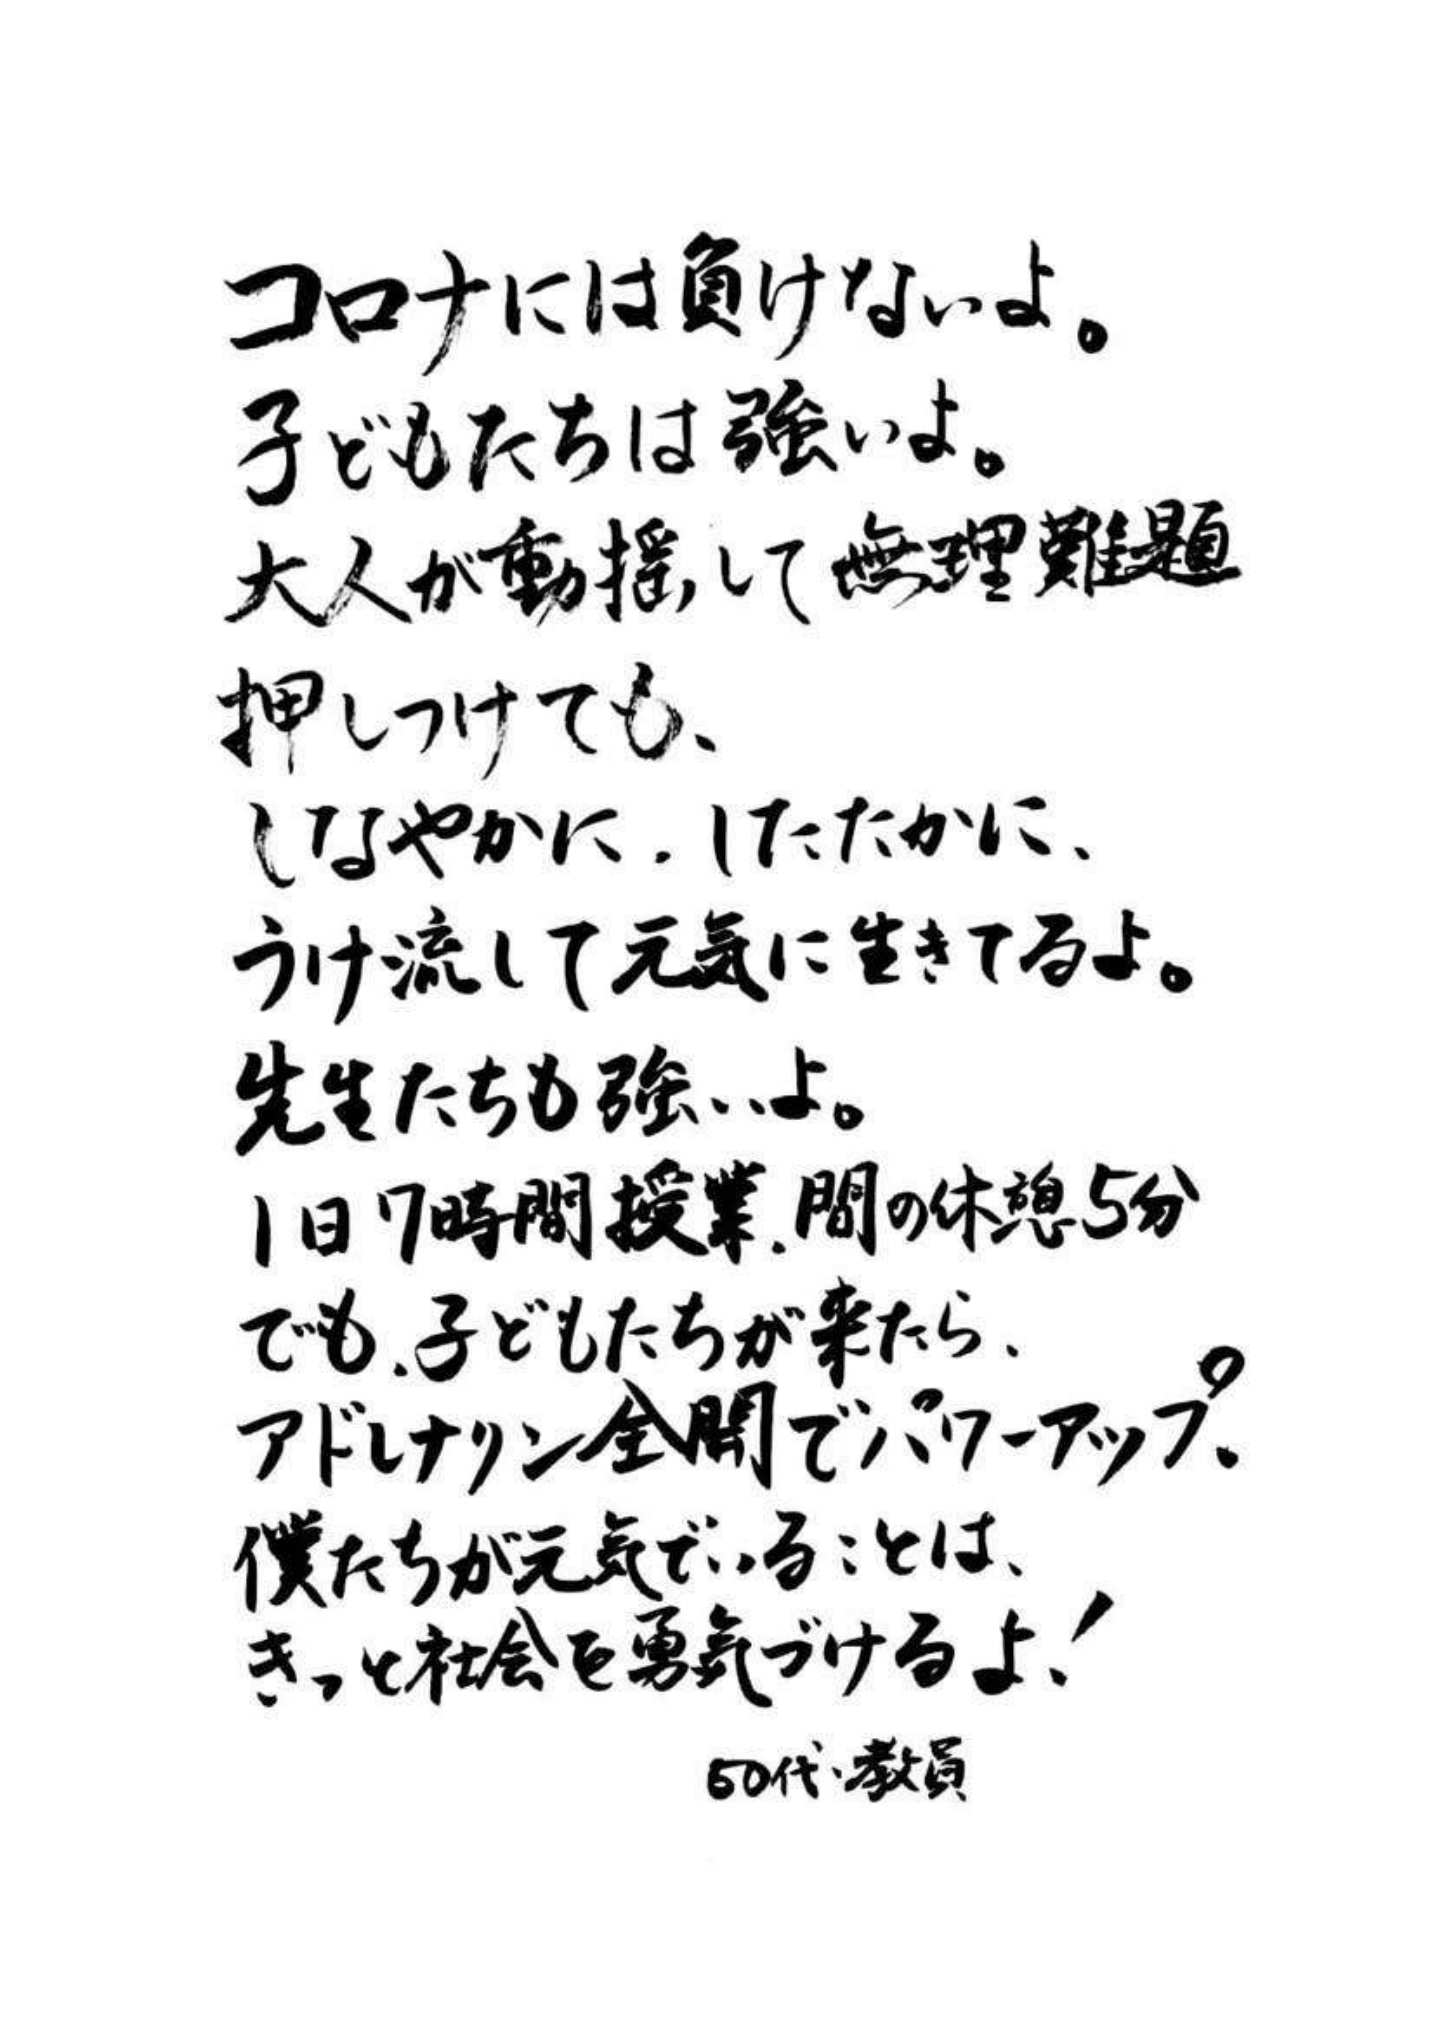 コロナには負けないよ。
子どもたちは強いよ。
大人が動揺して無理難題
押しつけても、
しなやかに、したたかに、
うけ流して元気に生きてるよ。
先生たちも強いよ。
1日7時間授業、間の休憩5分
でも、子どもたちが来たら、
アドレナリン全開でパワーアップ。
僕たちが元気でいることは、
きっと社会を勇気づけるよ!
50代・教員